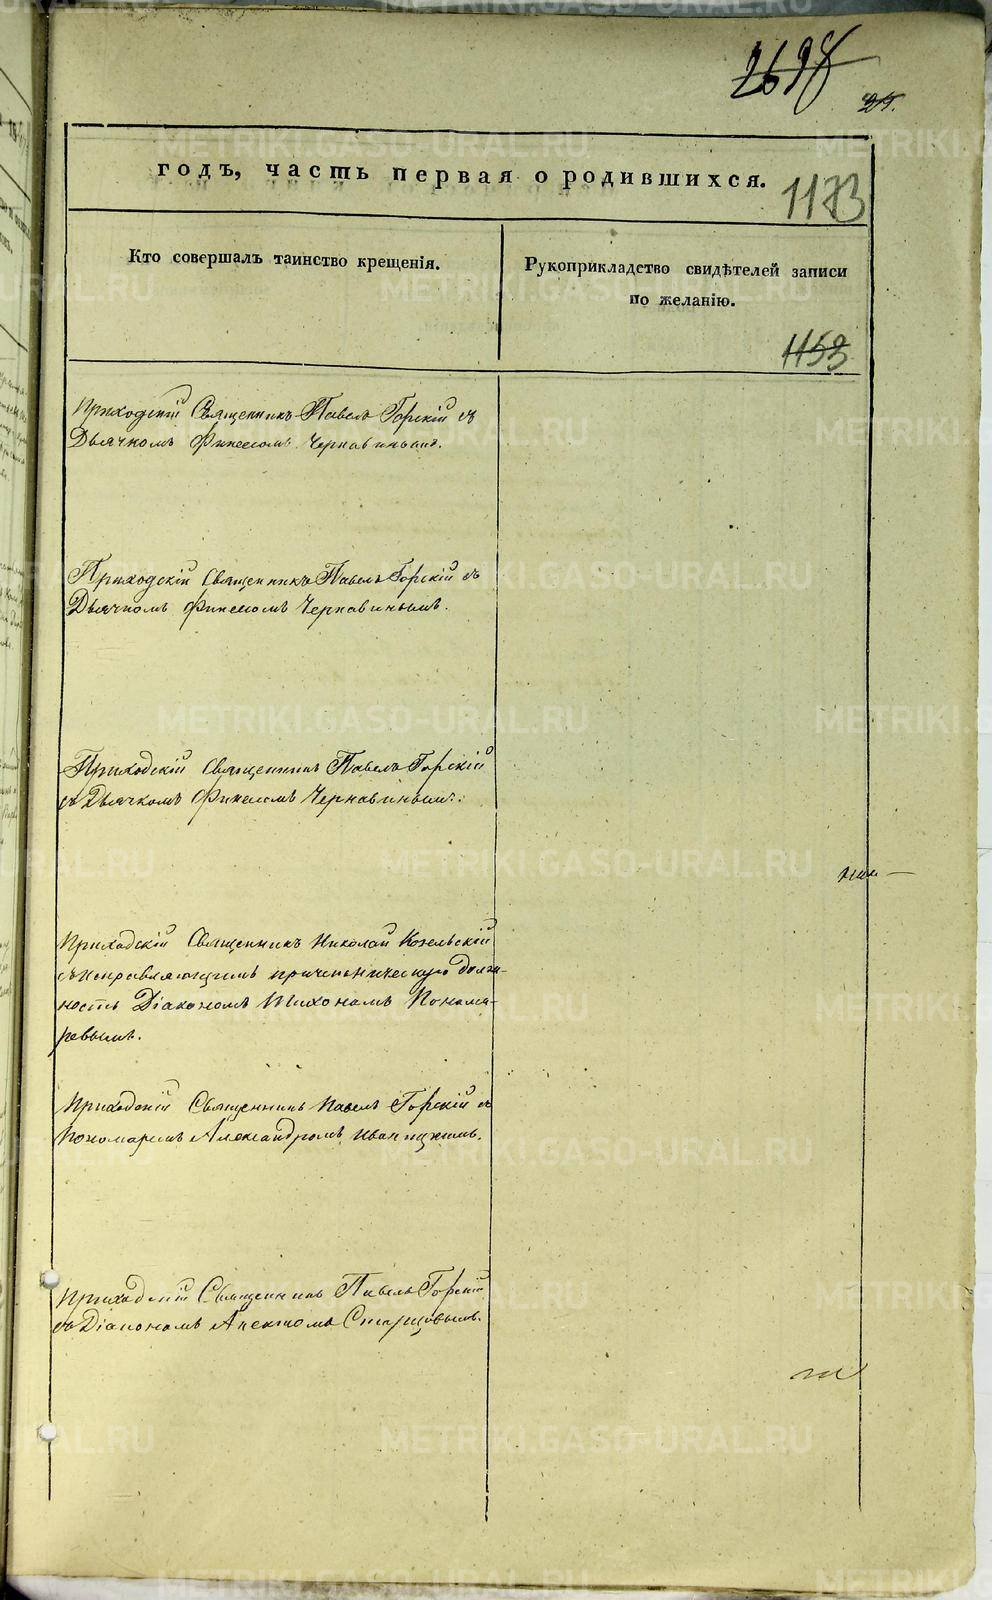 2698
25.
годъ, часть первая о родившихся.
1173
Кто совершалъ таинство крещенія.
Рукоприкладство свидѣтелей записи
по желанію.
1153
Приходскій Священникъ Павелъ Горскій съ
Дьячкомъ Финеесомъ Чернавинымъ.
Приходскій Священникъ Павелъ Горскій съ
Дьячкомъ Финеесомъ Чернавинымъ.
Приходскій Священникъ Павелъ Горскій
съ Дьячкомъ Финеесомъ Чернавинымъ.
Приходскій Священникъ Николай Козельскій
съ исправляющимъ причетническую долж-
ность Діакономъ Тихономъ Понома-
ревымъ.
Приходскій Священникъ Павелъ Горскій съ
Пономаремъ Александромъ Иваницкимъ.
Приходскій Священникъ Павелъ Горскій
съ Діакономъ Старцовымъ.
METRIKI.GASO-URAL.RU